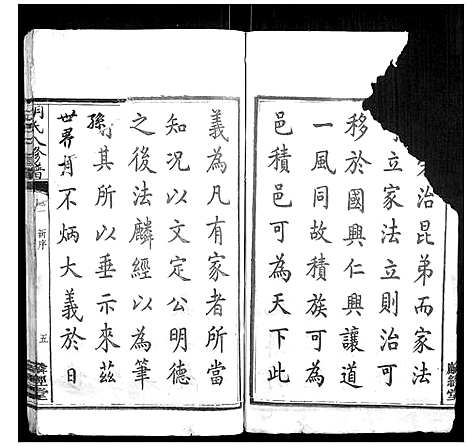 家治昆弟而家法
立家法立則治可
移於國興仁興讓道
一風同故積族可為
邑積邑可為天下此
義為凡有家者所當
知況以文定公明德
之後法麟經以為筆
孫其所以垂示來茲
世界有不炳大義於日
氏八修譜
新序
五
麟經堂
麟經堂